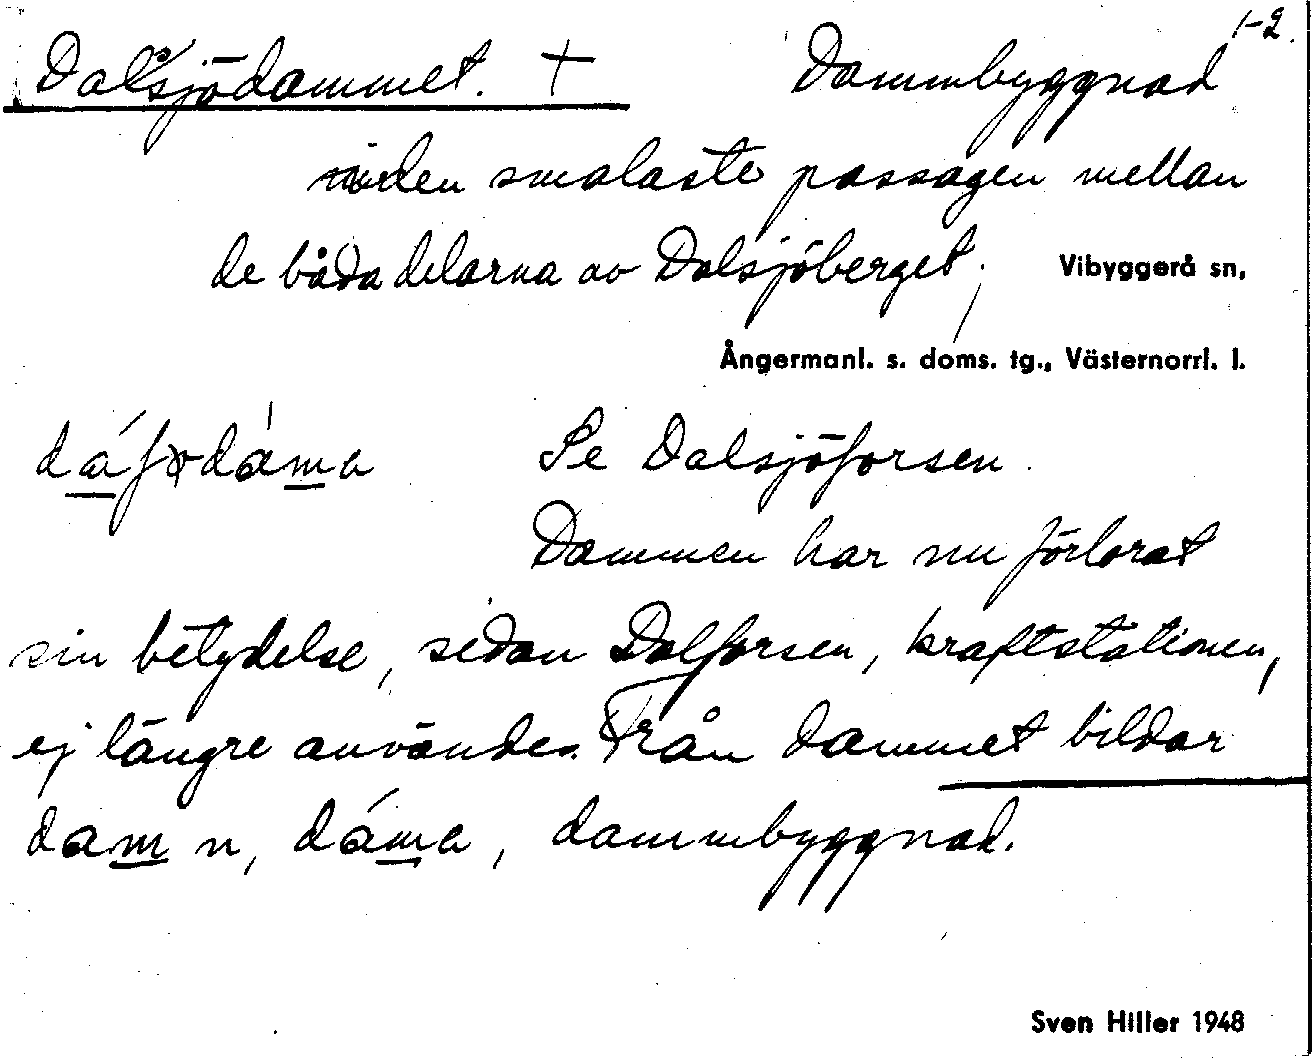 1-2.
Dalsjödammet. + Dammbyggnad
vid den smalaste passagen mellan
de båda delarna av Dalsjöberget, Vibyggerå sn,
Ångermanl. s. doms. tg., Västernorrl. l.
Se Dalsjöforsen.
Dammen har nu förlorat
sin betydelse, sedan Dalforsen, kraftstationen,
ej längre användes. Från dammet bildar
dam n, dáma, dammbyggnad.
Sven Hiller 1948